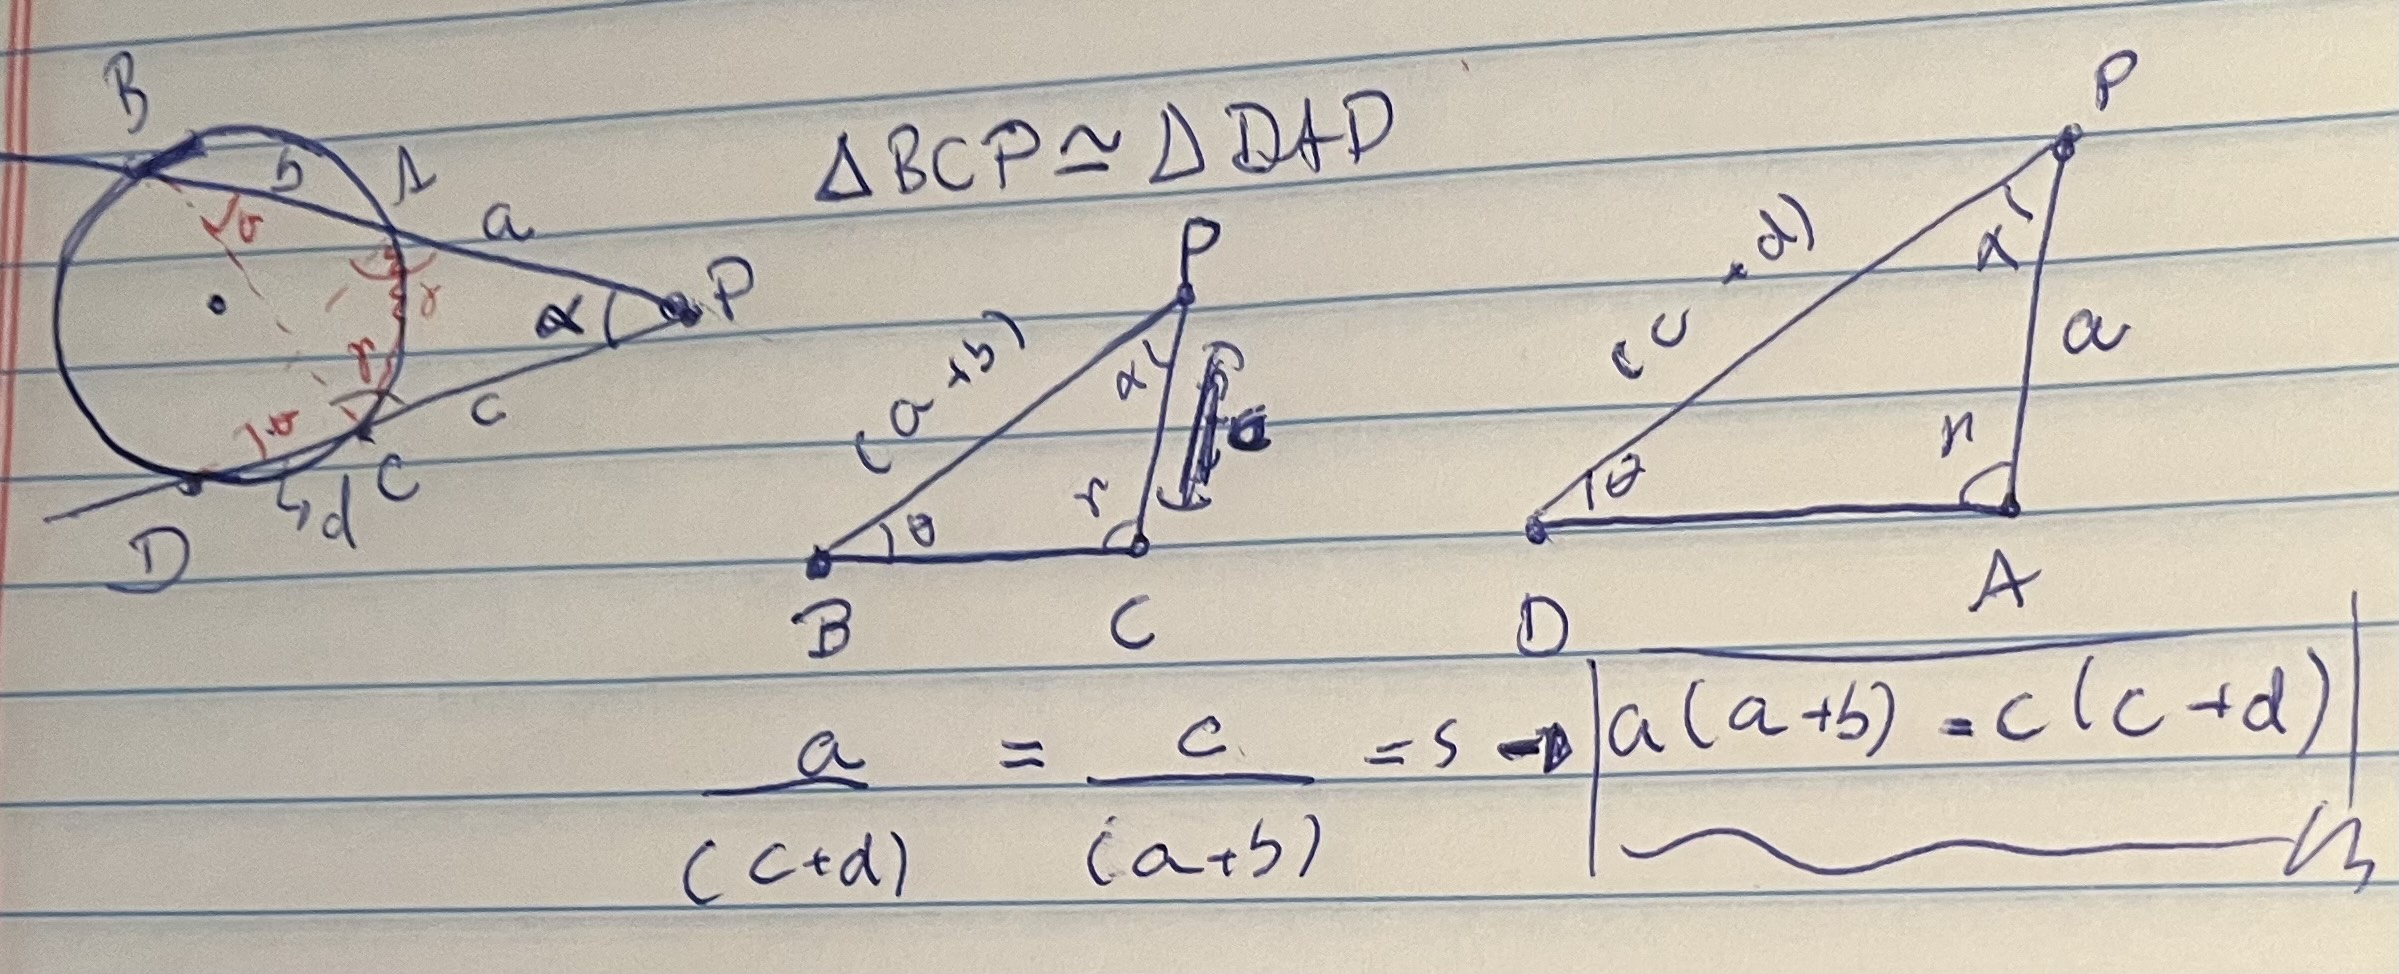 B
b
A
a
P
θ
γ
γ
α
θ
c
C
d
D
ΔBCP ≃ ΔDAD
P
(a+b)
α
θ
γ
c
B
C
P
(c+d)
α
a
θ
γ
D
A
a/(c+d) = c/(a+b) = s → a(a+b) = c(c+d)